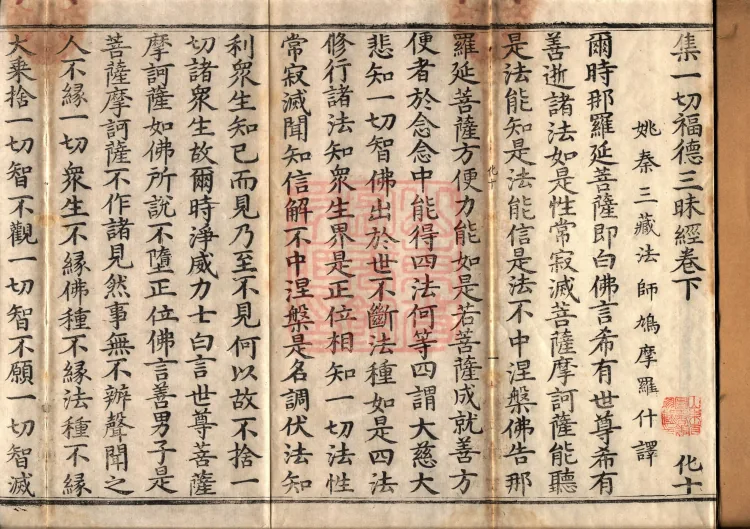 集一切福德三昧經卷下 化十
姚秦三藏法師鳩摩羅什譯
爾時那羅延菩薩即白佛言希有世尊希有
善逝諸法如是性常寂滅菩薩摩訶薩能聽
是法能知是法能信是法不中涅槃佛告那
化十
羅延菩薩方便力能如是若菩薩成就善方
便者於念念中能得四法何等四謂大慈大
悲知一切智佛出於世不斷法種如是四法
修行諸法知衆生界是正位相知一切法性
常寂滅聞知信解不中涅槃是名調伏法知
利衆生知已而見乃至不見何以故不捨一
切諸衆生故爾時淨威力士白言世尊菩薩
摩訶薩如佛所說不墮正位佛言善男子是
菩薩摩訶薩不作諸見然事無不辦聲聞之
人不緣一切衆生不緣佛種不緣法種不緣
大乘捨一切智不觀一切智不願一切智滅